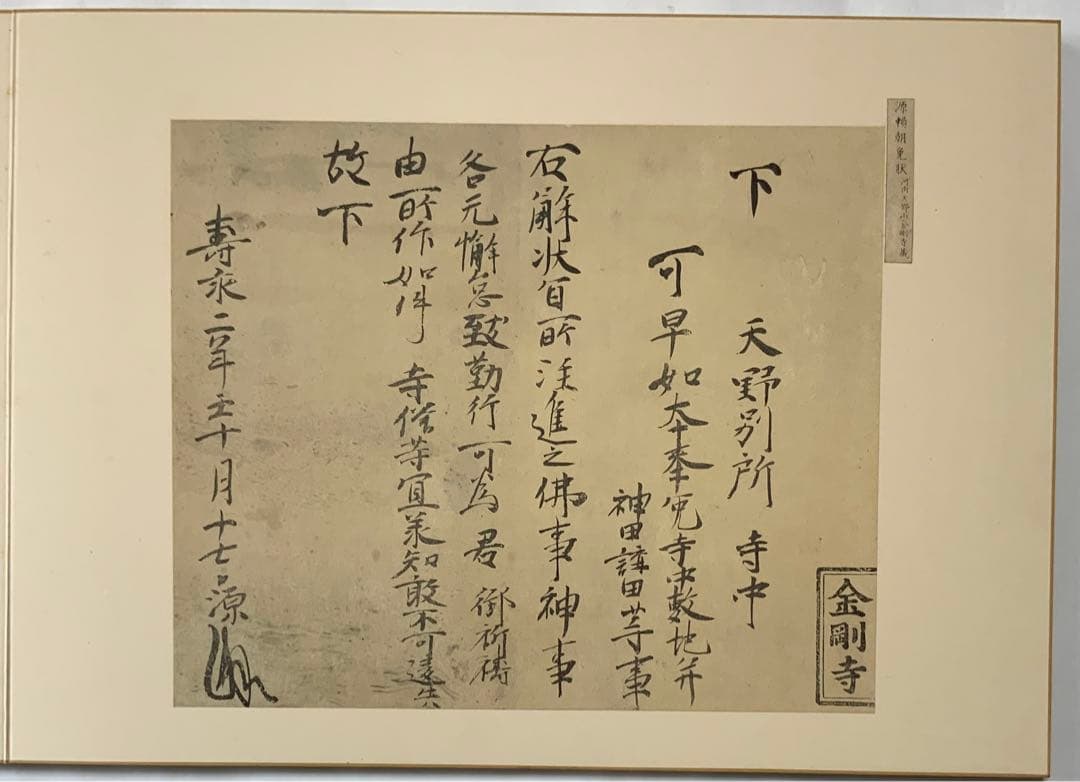 源頼朝免状 河内天野山金剛寺蔵
金剛寺
下 天野別所 寺中
可早如本奉免寺中敷地并
神田講田芋事
右解状自所注進之佛事神事
各元懈怠致勤行可為君御祈祷
由所作如件 寺僧等宜承知敢不可違失
故下
壽永二年十月十七日源